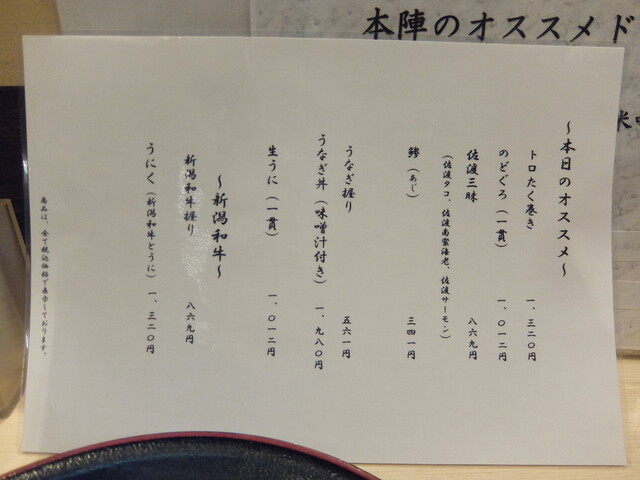 本陣のオススメド
～本日のオススメ～
トロたく巻き 一、三二〇円
のどぐろ（一貫） 一、〇一二円
佐渡三昧 八六九円
（佐渡タコ、佐渡南蛮海老、佐渡サーモン）
鯵（あじ） 三四一円
うなぎ握り 五六一円
うなぎ丼（味噌汁付き） 一、九八〇円
生うに（一貫） 一、〇一二円
～新潟和牛～
新潟和牛握り 八六九円
うにく（新潟和牛とうに） 一、三二〇円
商品は、全て税込価格で表示しております。